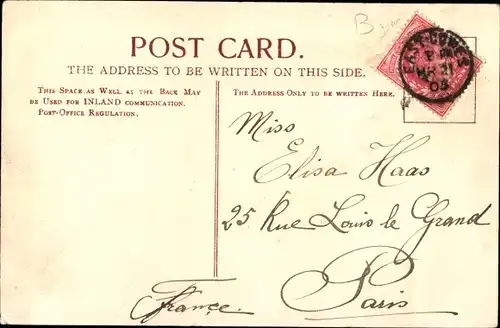 B
POST CARD.
THE ADDRESS TO BE WRITTEN ON THIS SIDE.
THIS SPACE, AS WELL AS THE BACK MAY
BE USED FOR INLAND COMMUNICATION.
POST-OFFICE REGULATION.
THE ADDRESS ONLY TO BE WRITTEN HERE.
EAST-COWES
05
Miss
Elisa Haas
25 Rue Louis le Grand
Paris
France.